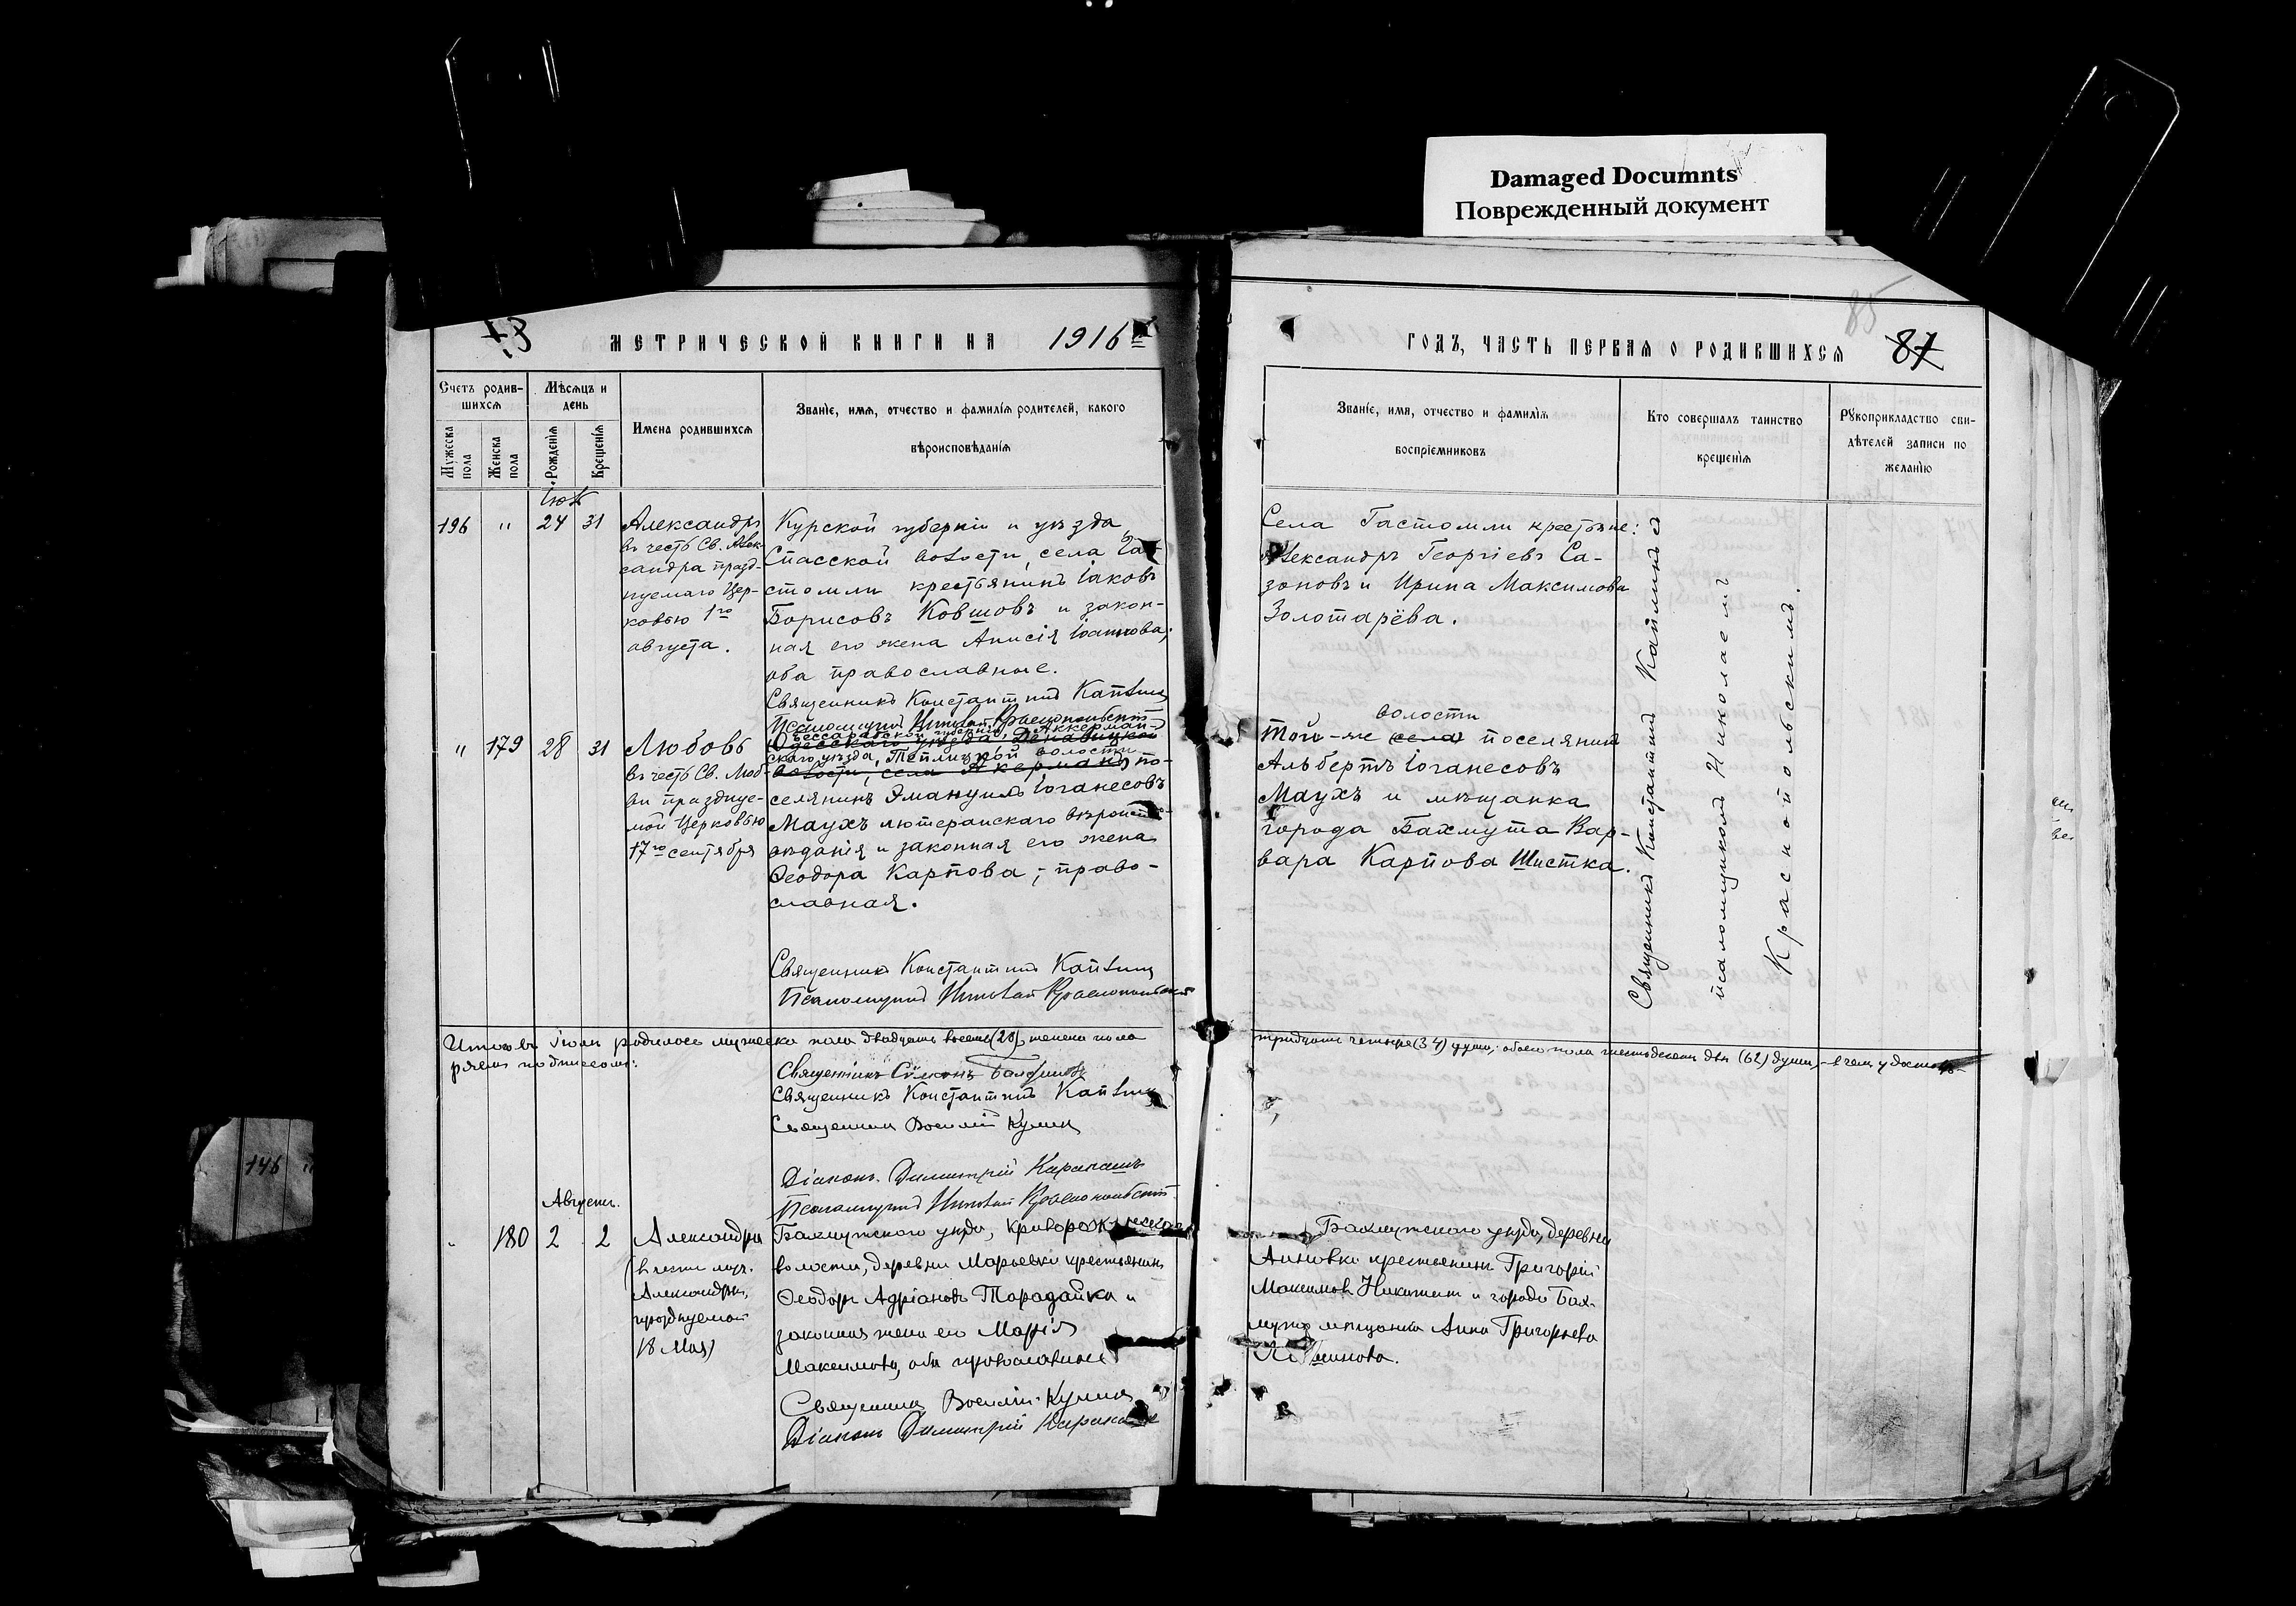 Damaged Documnts
Поврежденный документ
МЕТРИЧЕСКОЙ КНИГИ НА 1916
ГОДЪ, ЧАСТЬ ПЕРВАЯ О РОДИВШИХСЯ
85
87
Счетъ родившихся
Мужеска пола
Женска пола
Мѣсяцъ и день
Рожденія
Крещенія
Имена родившихся
Званіе, имя, отчество и фамилія родителей, какого
вѣроисповѣданія
Званіе, имя, отчество и фамилія
воспріемниковъ
Кто совершалъ таинство
крещенія
Рукоприкладство сви-
дѣтелей записи по
желанію
196 " 24 31
Александръ
въ честь Св. Алек-
сандра празд-
нуемаго Цер-
ковью 1го
августа.
Курской губерніи и уѣзда,
Спасской волости, села Га-
стомли крестьянинъ Іаковъ
Борисовъ Ковшовъ и закон-
ная его жена Анисія Іоаннова;
оба православные.
Священникъ Константинъ Каплинъ
Псаломщикъ Николай Краснопольскій
Села Гастомли крестьяне:
Александръ Георгіевъ Са-
зоновъ и Ирина Максимова
Золотарёва.
Священникъ Константинъ Каплинъ съ
псаломщикомъ Николаемъ
Краснопольскимъ.
" 179 28 31
Любовь
въ честь Св. Люб-
ви празднуе-
мой Церковью
17го сентября
Бессарабской губерніи, Аккерман-
Одесскаго уѣзда,
скаго уѣзда, Теплицкой волости
волости, села Акерманъ по-
селянинъ Эмануилъ Іоганесовъ
Маухъ лютеранскаго вѣроиспо-
вѣданія и законная его жена
Ѳеодора Карпова; - право-
славная.
Священникъ Константинъ Каплинъ
Псаломщикъ Николай Краснопольскій
волости
Той-же села поселянинъ
Альбертъ Іоганесовъ
Маухъ и мѣщанка
города Бахмута Вар-
вара Карпова Шистка.
Итого въ Іюлѣ родилось мужеска пола двадцать восемь (28), женска пола
тридцать четыре (34) души; обоего пола шестьдесятъ двѣ (62) души,- в чемъ удостовѣ-
ряемъ подписомъ:
Священникъ Константинъ Каплинъ
Священникъ Василій Кулик
Діаконъ Димитрій Карапашъ
Псаломщикъ Николай Краснопольскій
Августъ.
180 2 2
Александра
(в честь муч.
Александры,
празднуемой
18 Мая)
Бахмутского уезда,
волости, деревни Марьевки крестьянинъ
Ѳеодоръ Адріановъ Тарадайка и
законная жена его Марія
Максимова, оба православные
Священникъ Василій Кулик
Діаконъ Димитрій Карапашъ
Бахмутского уезда, деревни
Анновки крестьянинъ Григорій
Максимовъ Никитинъ и города Бах-
мута мѣщанка Анна Григорьева
146